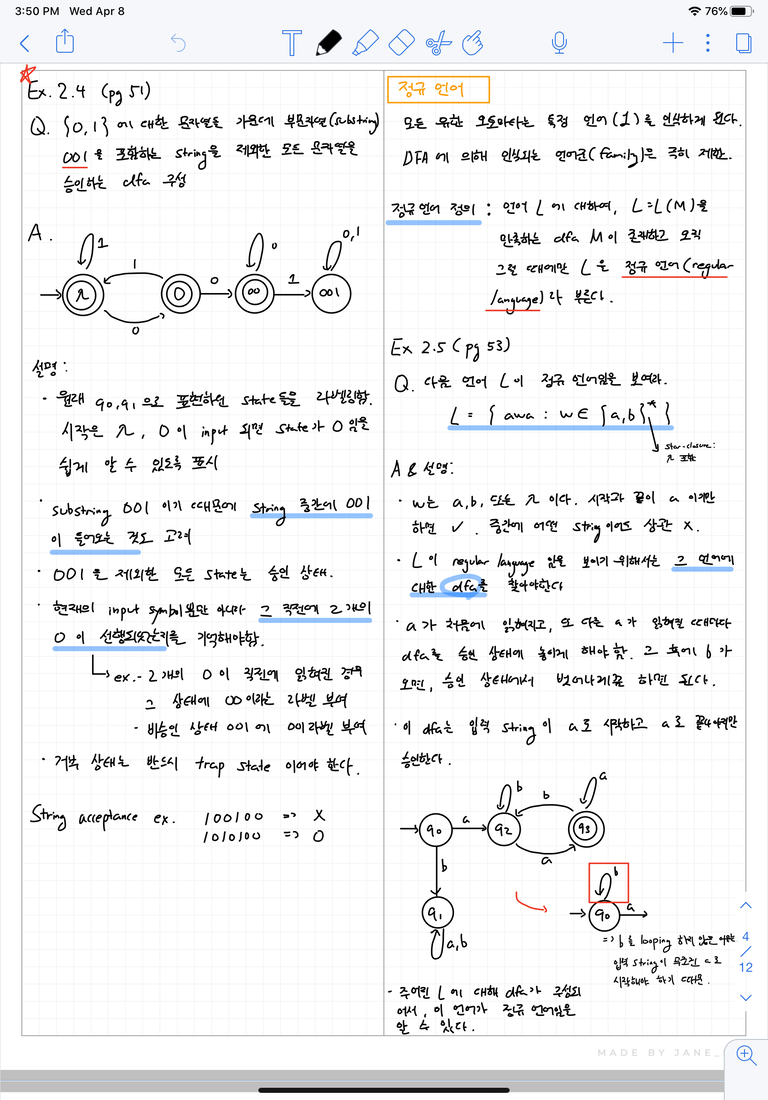 3:50 PM Wed Apr 8
76%
Ex. 2.4 (pg 51)
Q. {0,1}에 대한 문자열들 가운데 부문자열(substring)
001을 포함하는 string을 제외한 모든 문자열을
승인하는 dfa 구성
A.
1
1
0
0
0
1
0,1
λ
0
00
001
설명:
· 원래 q0, q1으로 표현하던 state들을 라벨링함.
시작은 λ, 0이 input 되면 state가 0 임을
쉽게 알 수 있도록 표시
· substring 001 이기 때문에 string 중간에 001
이 들어오는 것도 고려
· 001을 제외한 모든 state는 승인 상태.
· 현재의 input symbol뿐만 아니라 그 직전에 2개의
0이 선행되었는지를 기억해야함.
ex.- 2개의 0이 직전에 읽혀진 경우
그 상태에 00이라는 라벨 부여
- 비승인 상태 001에 001라벨 부여
· 거부 상태는 반드시 trap state 이어야 한다.
String acceptance ex. 100100 => X
1010100 => O
정규 언어
모든 유한 오토마타는 특정 언어(1)를 인식하게 된다.
DFA에 의해 인식되는 언어군(family)은 극히 제한.
정규언어 정의 : 언어 L에 대하여, L=L(M)을
만족하는 dfa M이 존재하고 오직
그런 때에만 L은 정규 언어(regular
language)라 부른다.
Ex 2.5 (pg 53)
Q. 다음 언어 L이 정규 언어임을 보여라.
L = { awa : w ∈ {a,b}* }
star-closure:
λ 포함
A & 설명:
· w는 a,b, 또는 λ 이다. 시작과 끝이 a 이기만
하면 ✓. 중간에 어떤 string이어도 상관 X.
· L이 regular language 임을 보이기 위해서는 그 언어에
대한 dfa를 찾아야한다
· a가 처음에 읽혀지고, 또 다른 a가 읽혀질 때마다
dfa를 승인 상태에 놓이게 해야 함. 그 후에 b가
오면, 승인 상태에서 벗어나게끔 하면 된다.
· 이 dfa는 입력 string이 a로 시작하고 a로 끝나야지만
승인한다.
q0
a
q2
b
b
a
q3
a
b
q1
a,b
b
q0
a
=> b를 looping 하지 않은 이유는
입력 string이 무조건 a로
시작해야 하기 때문.
- 주어진 L에 대해 dfa가 구성되
어서, 이 언어가 정규 언어임을
알 수 있다.
4
12
MADE BY JANE_